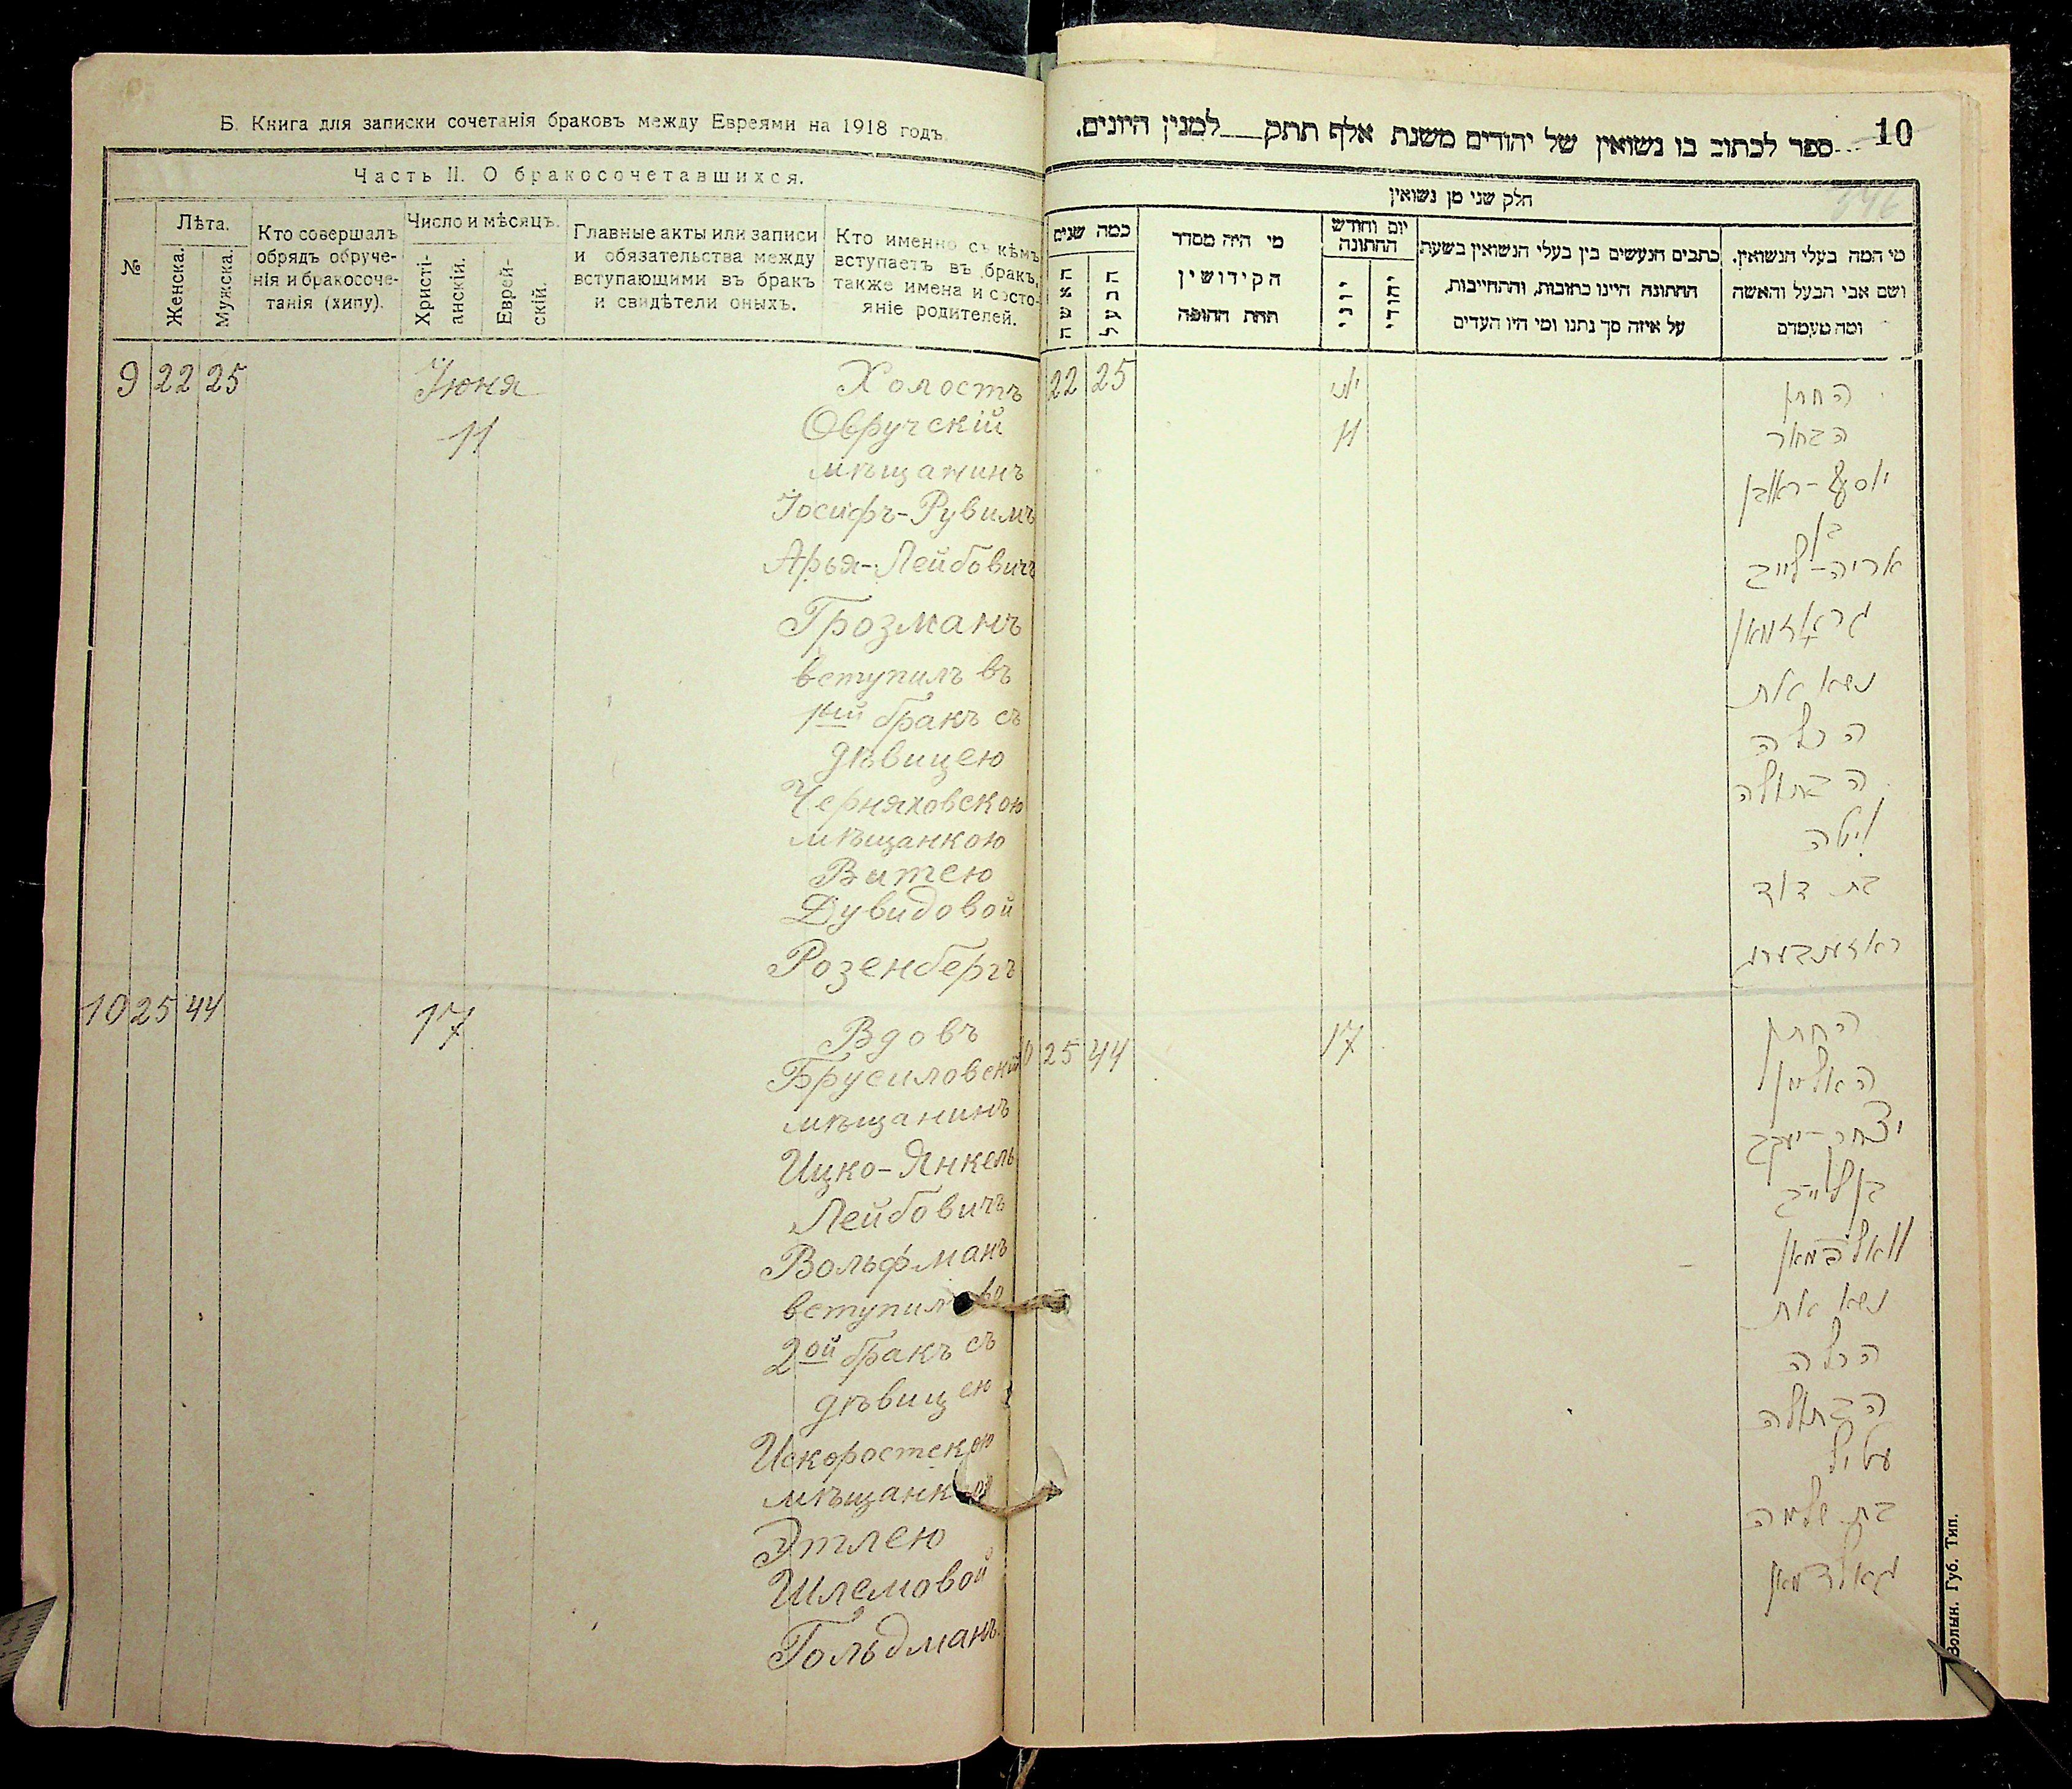 Б. Книга для записки сочетанія браковъ между Евреями на 1918 годъ.
Часть II. О бракосочетавшихся.
№
Лѣта.
Женска.
Мужска.
Кто совершалъ
обрядъ обруче-
нія и бракосоче-
танія (хипу).
Число и мѣсяцъ.
Христі-
анскій.
Еврей-
скій.
Главные акты или записи
и обязательства между
вступающими въ бракъ
и свидѣтели оныхъ.
Кто именно съ кѣмъ
вступаетъ въ бракъ,
также имена и состо-
яніе родителей.
9 22 25 Іюня Холостъ
11 Овручскій
мѣщанинъ
Іосифъ-Рувимъ
Арья-Лейбовичъ
Грозманъ
вступилъ въ
1ый бракъ съ
дѣвицею
Черняховскою
мѣщанкою
Витею
Дувидовой
Розенбергъ
10 25 44 17 Вдовъ
Брусиловскій
мѣщанинъ
Ицко-Янкель
Лейбовичъ
Вольфманъ
вступил во
2ой бракъ съ
дѣвицею
Искоростскою
мѣщанкой
Этлею
Шлемовой
Гольдманъ.
10
ספר לכתוב בו נשואין של יהודים משנת אלף תתק למנין היונים.
חלק שני מן נשואין
כמה שנים
האשה
הבעל
מי היה מסדר
הקידושין
תחת החופה
יום וחודש
החתונה
יוני
יהודי
כתבים הנעשים בין בעלי הנשואין בשעת
החתונה היינו כתובות, והתחייבות,
על איזה סך נתנו ומי היו העדים
מי המה בעלי הנשואין.
ושם אבי הבעל והאשה
ומה מעמדם
22 25 יוני החתן
11 הבחור
יוסף-ראובן
בן
אריה-לייב
גראזמאן
נשא את
הכלה
הבתולה
וויטה
בת דוד
ראזענבערג
25 44 17 החתן
האלמן
יצחק-יעקב
בן לייב
וואלפמאן
נשא את
הכלה
הבתולה
עטיל
בת שלמה
גאלדמאן
Волын. Губ. Тип.